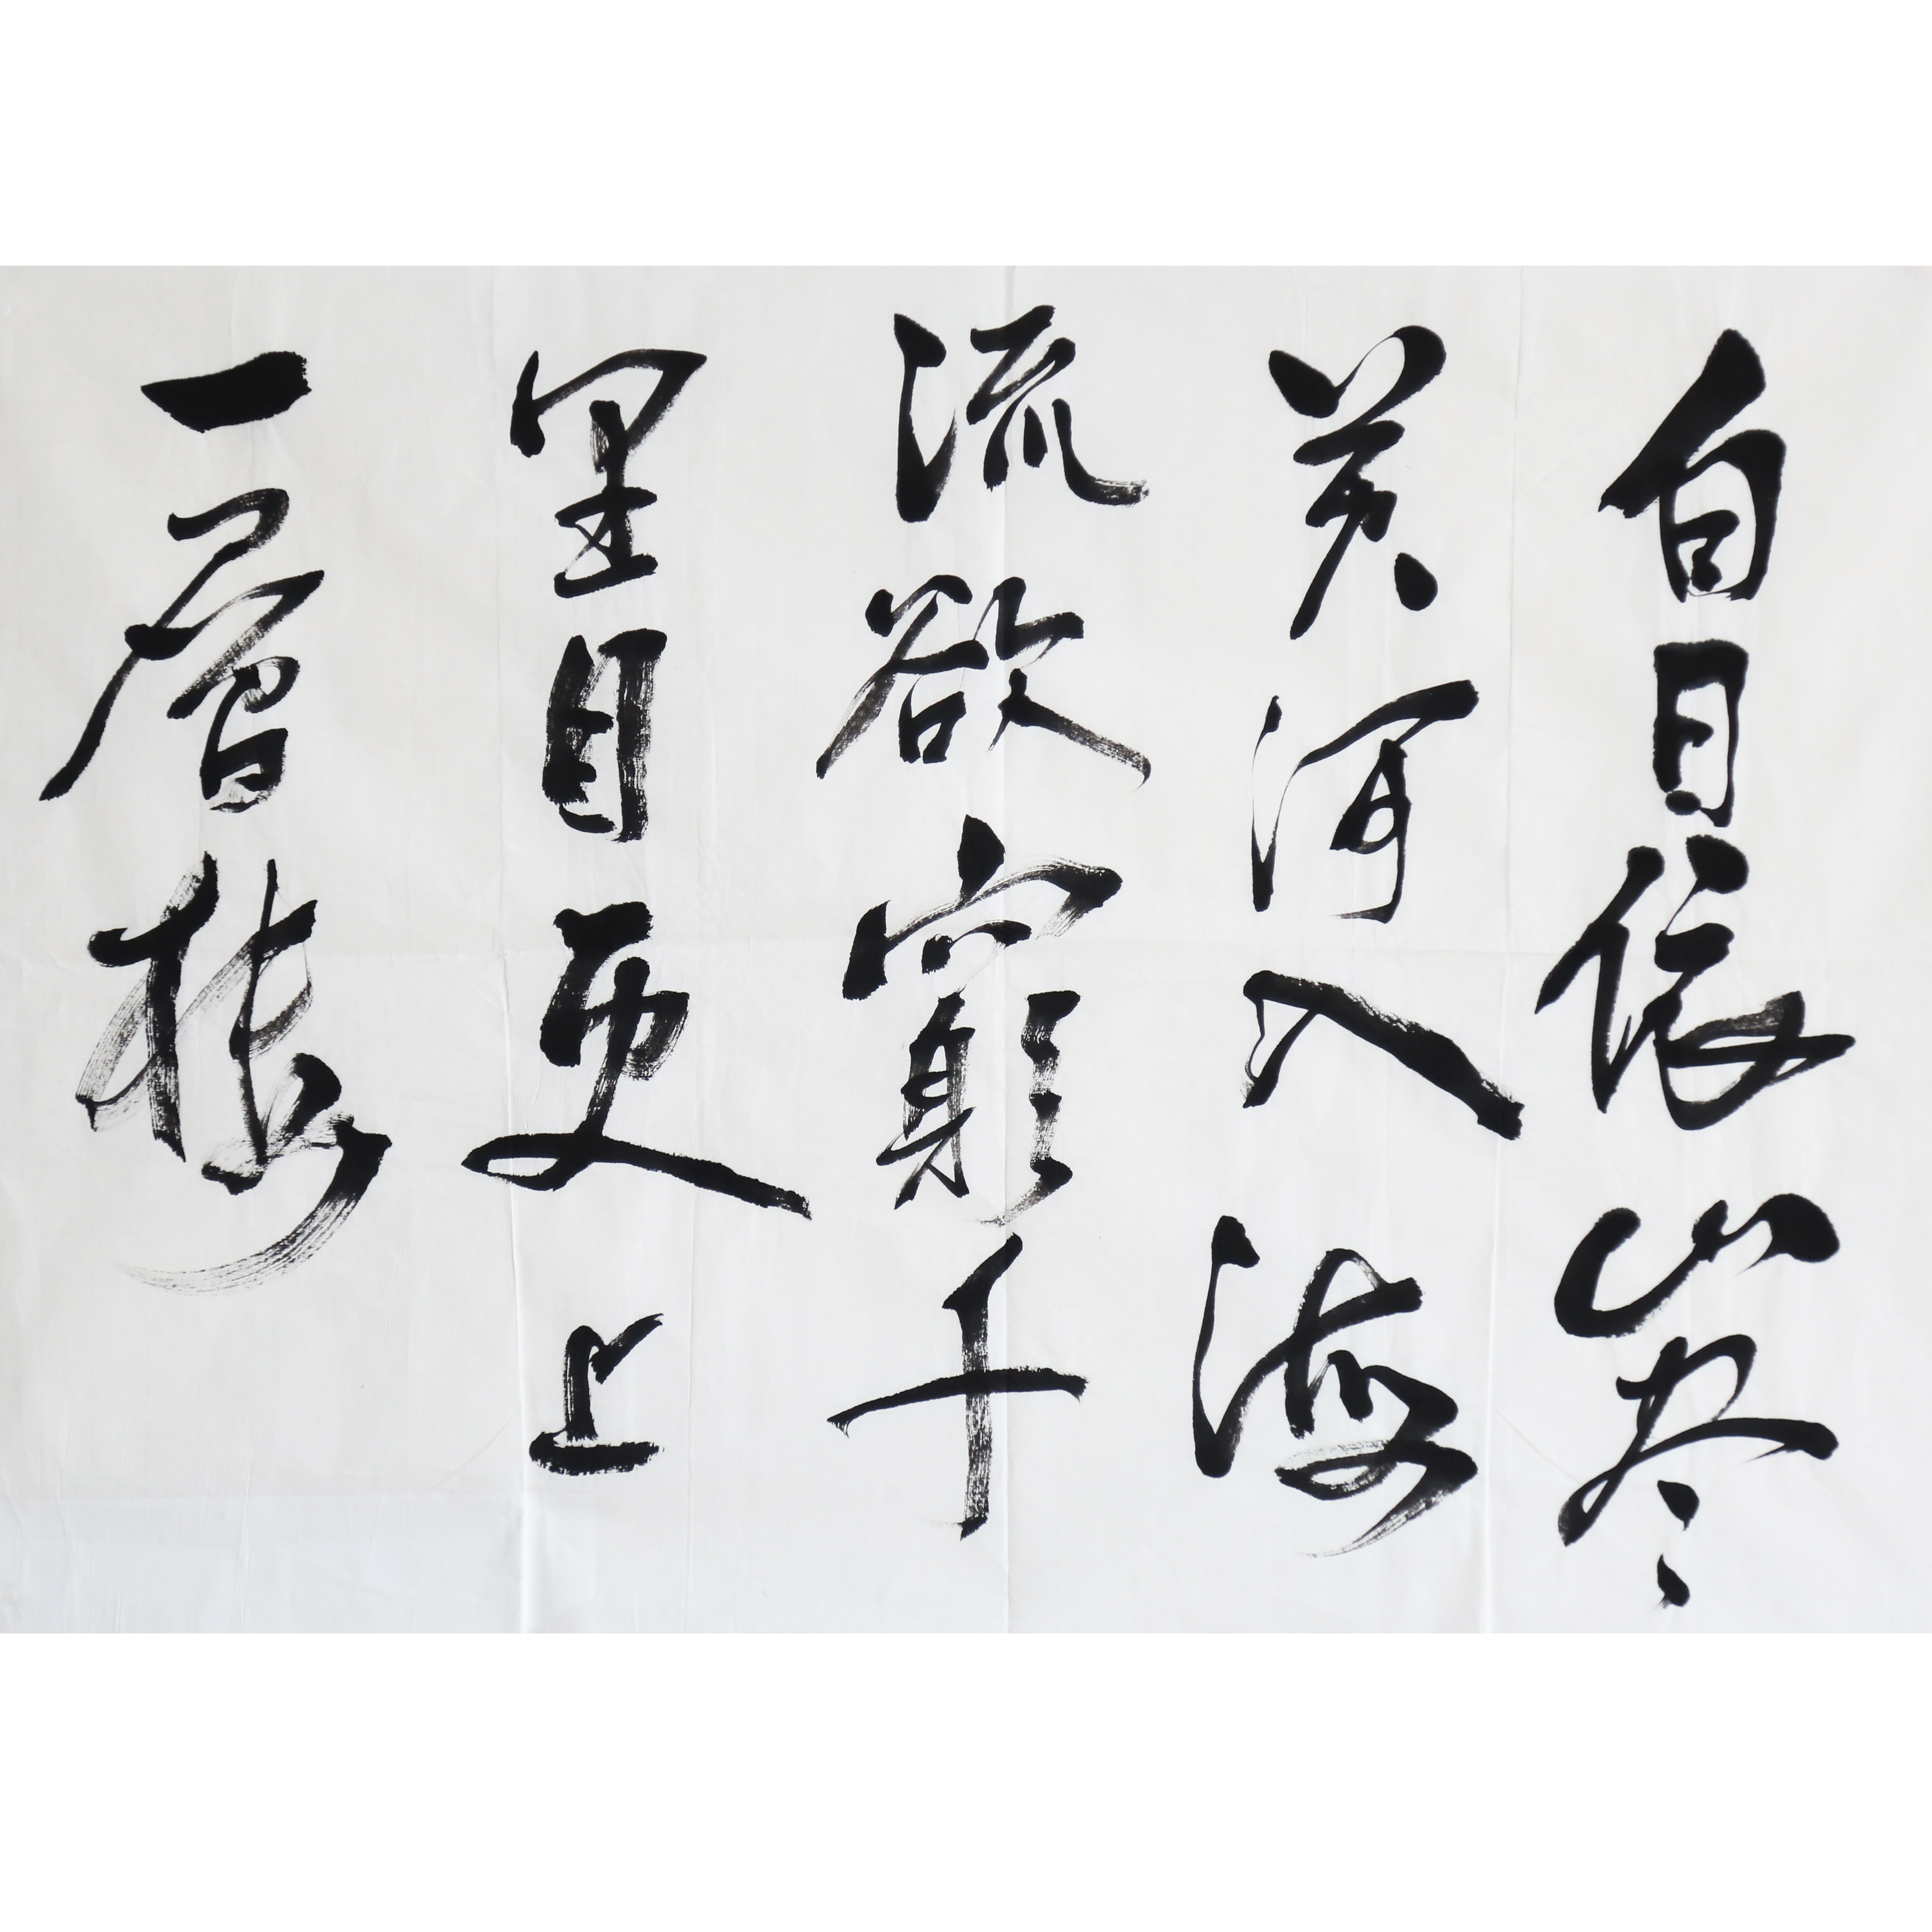 白日依山尽
黄河入海
流欲窮千
里目更上
一層楼